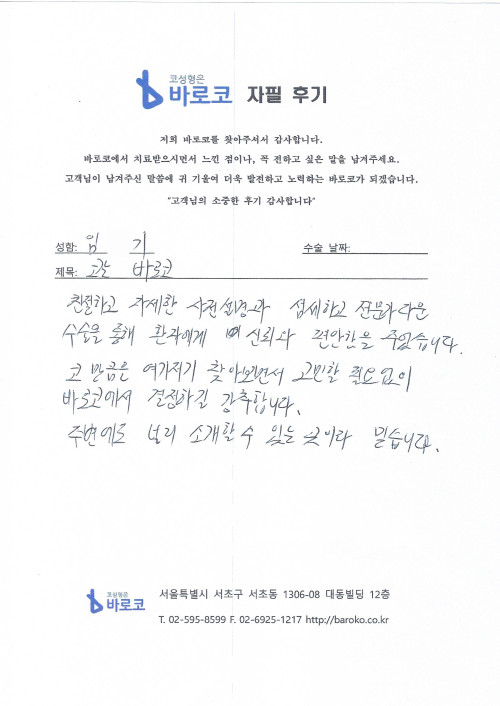 코성형은
바로코 자필 후기
저희 바로코를 찾아주셔서 감사합니다.
바로코에서 치료받으시면서 느낀 점이나, 꼭 전하고 싶은 말을 남겨주세요.
고객님이 남겨주신 말씀에 귀 기울여 더욱 발전하고 노력하는 바로코가 되겠습니다.
"고객님의 소중한 후기 감사합니다"
성함: 임 기 수술 날짜:
제목: 바로코
친절하고 자세한 사전설명과 섬세하고 전문가다운
수술을 통해 환자에게 신뢰와 편안함을 주었습니다.
코 만큼은 여기저기 찾아보면서 고민할 필요없이
바로코에서 결정하길 강추합니다.
주변에도 널리 소개할 수 있는 곳이라 믿습니다.
코성형은
바로코
서울특별시 서초구 서초동 1306-08 대동빌딩 12층
T. 02-595-8599 F. 02-6925-1217 http://baroko.co.kr